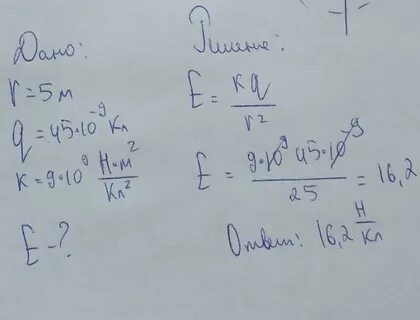 Дано:
r = 5 м
q = 45·10⁻⁹ Кл
к = 9·10⁹ Н·м²/Кл²
E - ?
Решение:
E = кq/r²
E = 9·10⁹ 45·10⁻⁹/25 = 16,2
Ответ: 16,2 Н/Кл